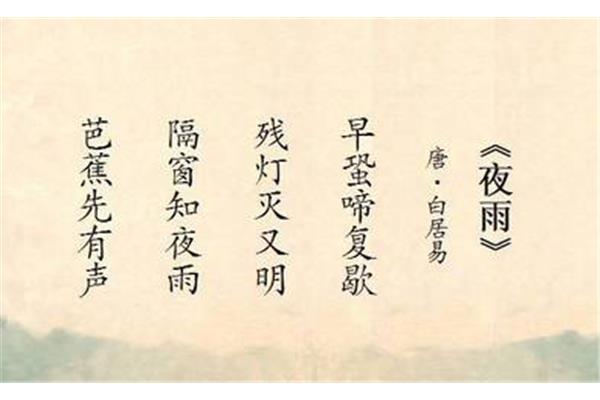 《夜雨》
唐·白居易
早蛩啼复歇
残灯灭又明
隔窗知夜雨
芭蕉先有声